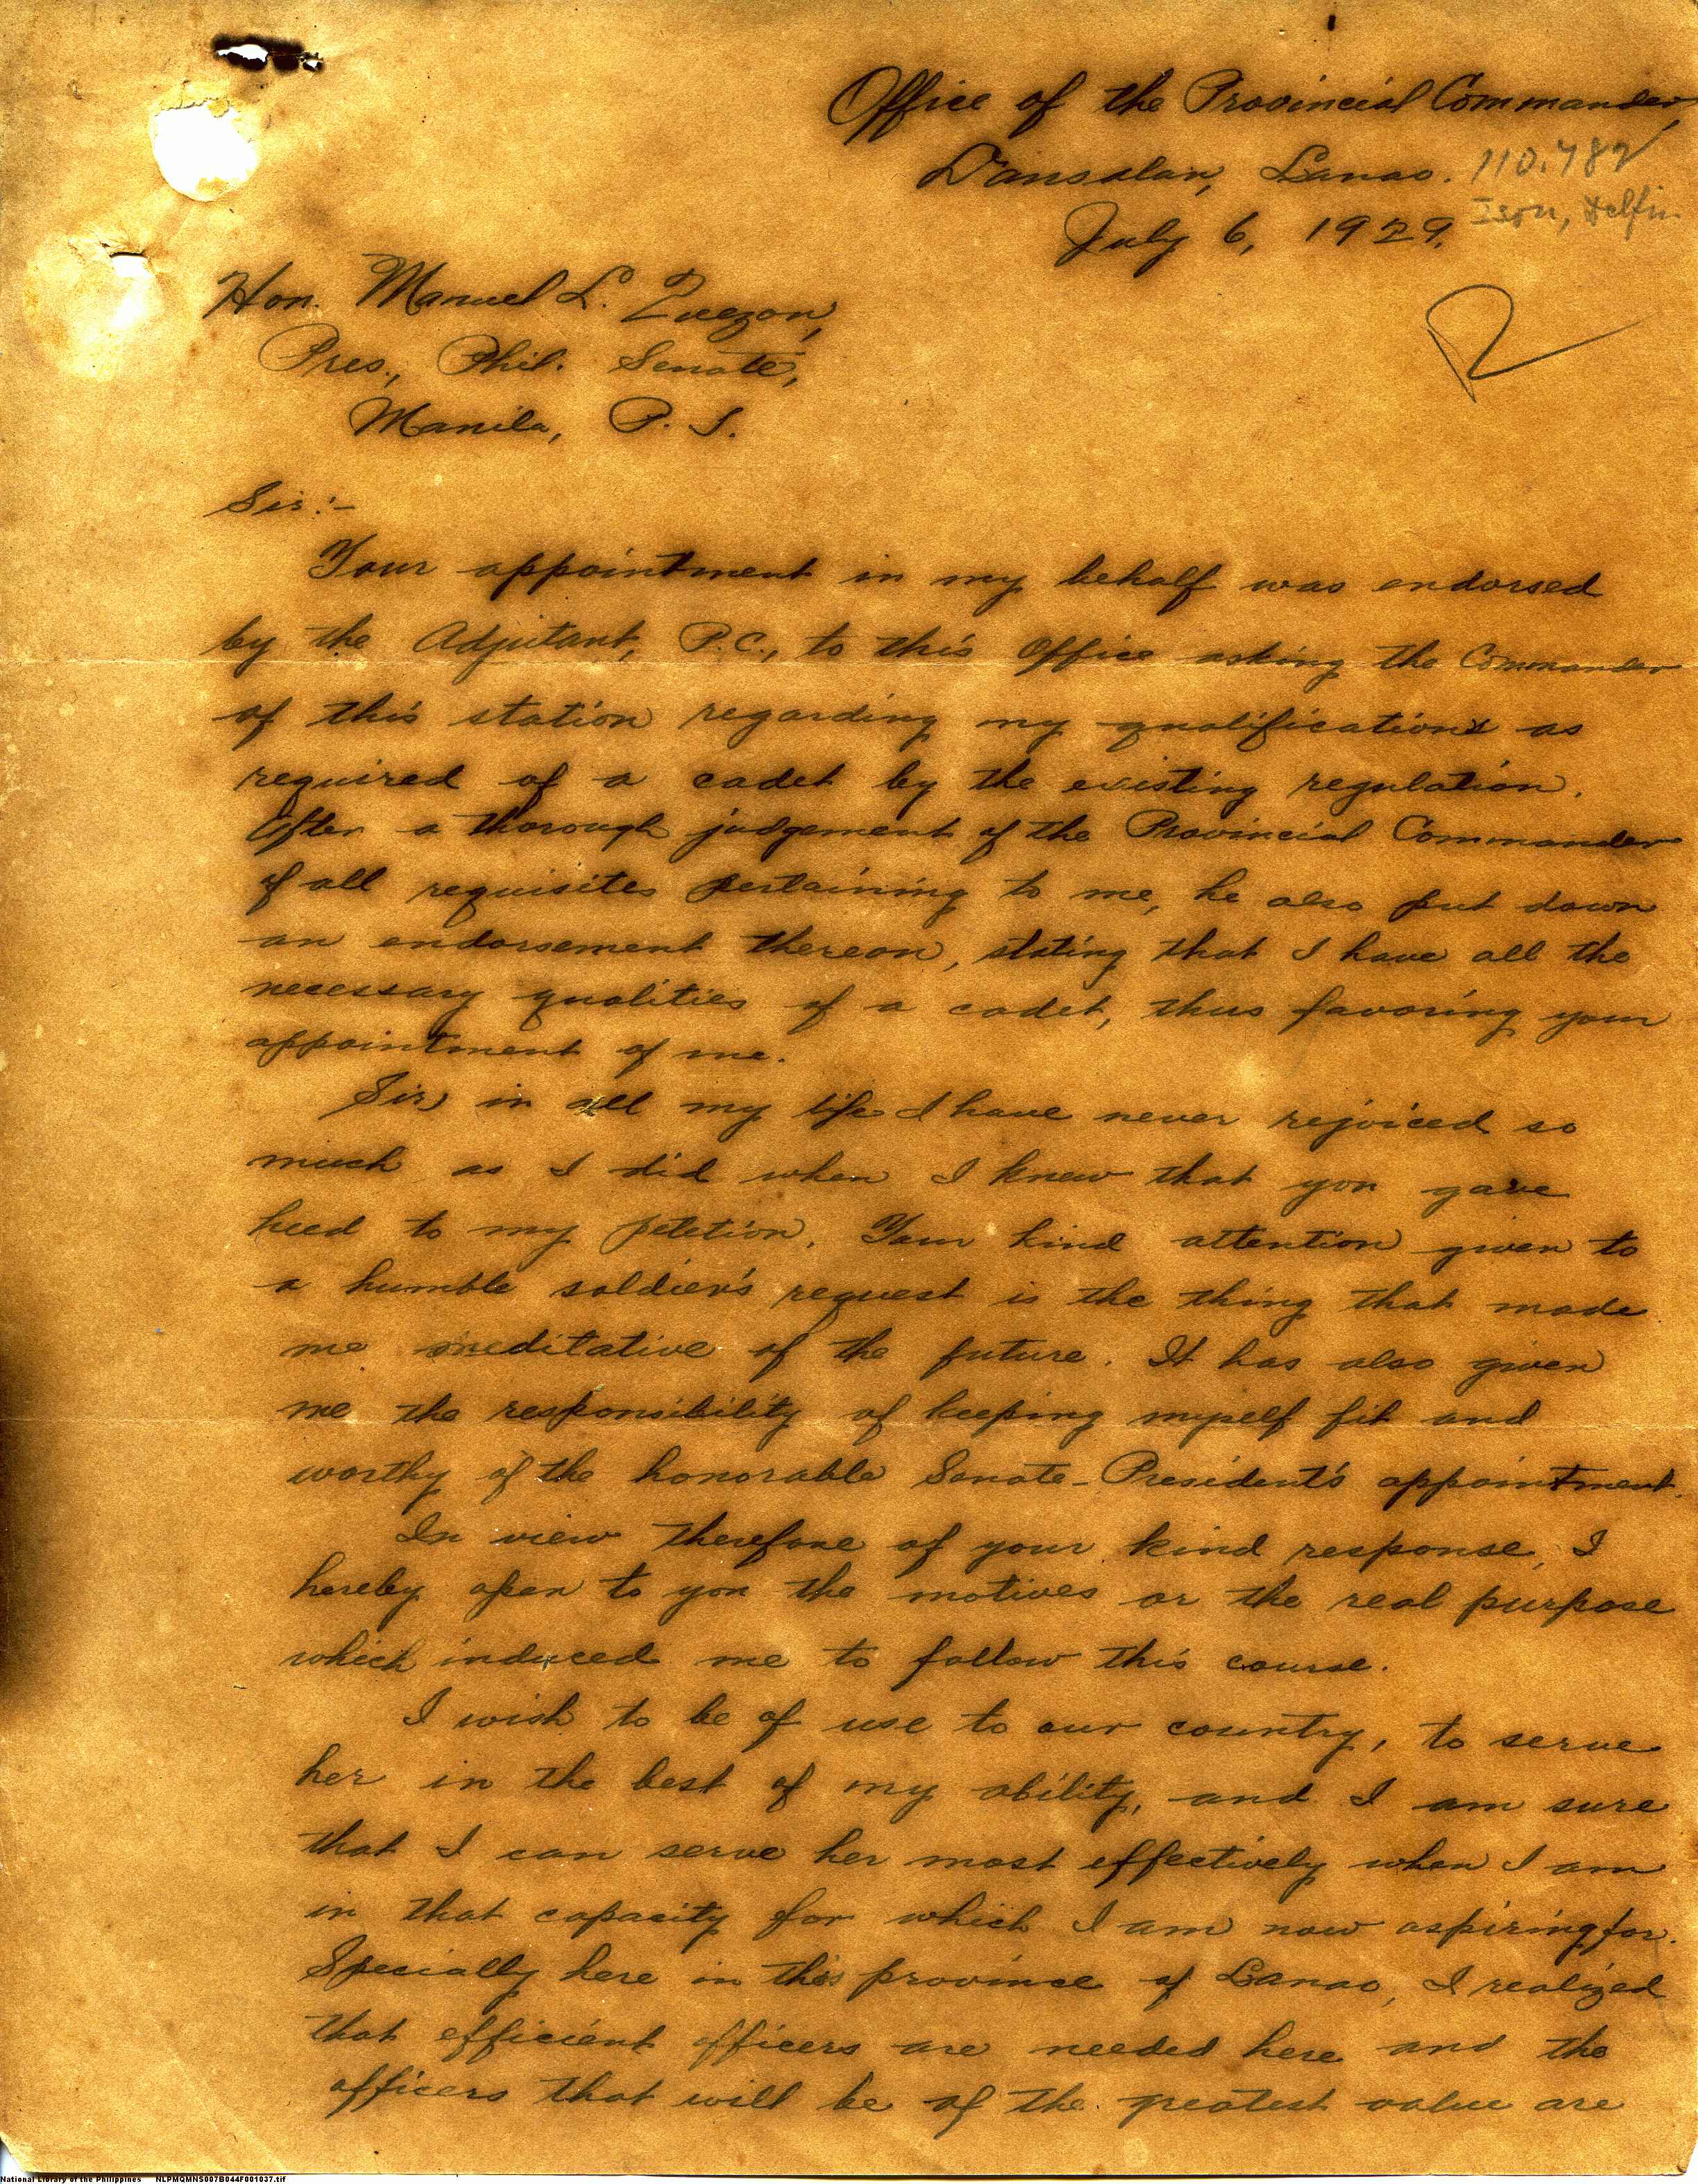 Office of the Provincial Commander,
Dansalan, Lanao.
110.782
July 6, 1929.
Ison, Delfin
R
Hon. Manuel L. Quezon,
Pres., Phil. Senate,
Manila, P. I.
Sir:-
Your appointment in my behalf was endorsed
by the Adjutant, P.C., to this Office asking the Commander
of this station regarding my qualifications as
required of a cadet by the existing regulation.
After a thorough judgement of the Provincial Commander
of all requisites pertaining to me, he also put down
an endorsement thereon, stating that I have all the
necessary qualities of a cadet, thus favoring your
appointment of me.
Sir, in all my life I have never rejoiced so
much as I did when I knew that you gave
heed to my petition. Your kind attention given to
a humble soldier's request is the thing that made
me meditative of the future. It has also given
me the responsibility of keeping myself fit and
worthy of the honorable Senate-President's appointment.
In view therefore of your kind response, I
hereby open to you the motives or the real purpose
which induced me to follow this course.
I wish to be of use to our country, to serve
her in the best of my ability, and I am sure
that I can serve her most effectively when I am
in that capacity for which I am now aspiring for.
Specially here in this province of Lanao, I realized
that efficient officers are needed here and the
officers that will be of the greatest value are
National Library of the Philippines NLPMQMNS007B044F001037.tif